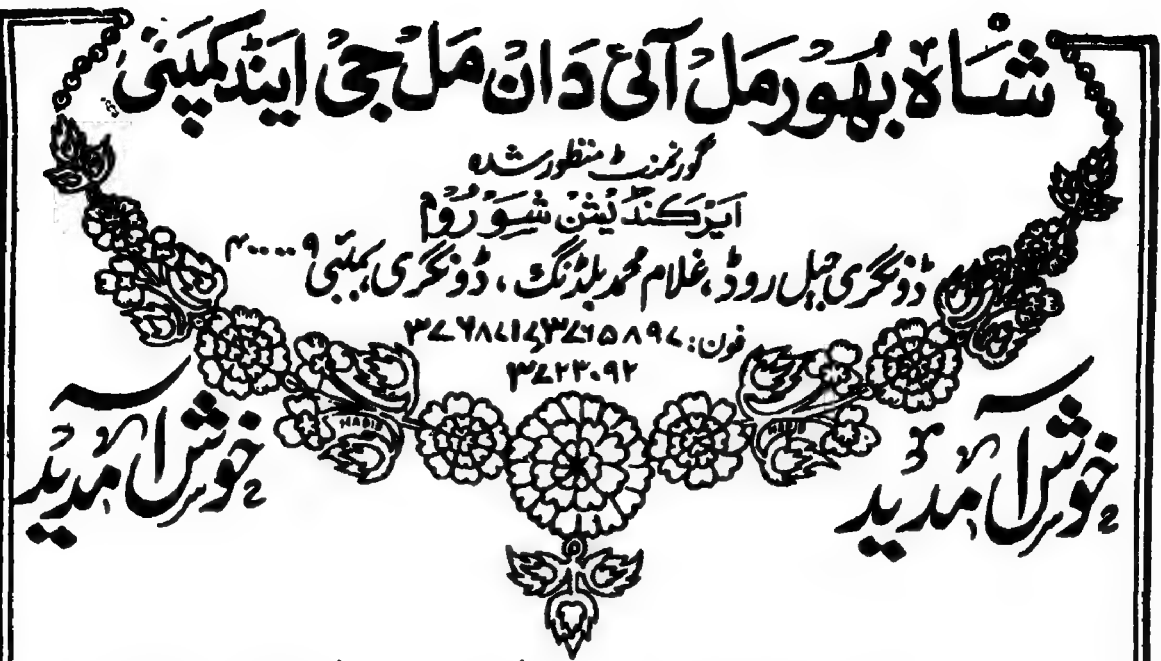 شاہ بھورمل آئی دان مل جی اینڈ کمپنی
گورنمنٹ منظور شدہ
ایئرکنڈیشن شوروم
ڈونگری جیل روڈ، غلام محمد بلڈنگ، ڈونگری بمبئی ۴۰۰۰۰۹
فون: ۳۷۶۵۸۹۷
۳۷۲۳۰۹۲
خوش آمدید
خوش آمدید
HABIB